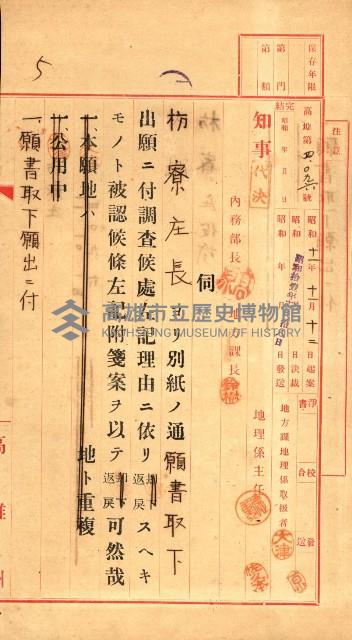 保存年限
第門
第類
注意
高埠第四〇九六號
完結 昭和 年 月 日
昭和十一年十一月十二日起案
昭和 年 月 日決裁
昭和 年 月 日發送
淨書
校合
發送
地方課地理係取扱者
大津
知事
代決
內務部長
地方課長
地理係主任
伺
枋寮庄長ヨリ別紙ノ通願書取下
出願ニ付調査候處左記理由ニ依リ却下返戾スヘキ
モノト被認候條左記附箋案ヲ以テ却下返戾可然哉
一、本願地ハ 地ト重複
一、公用中
一、願書取下願出ニ付
5
高雄州
高雄市立歷史博物館
KAOHSIUNG MUSEUM OF HISTORY